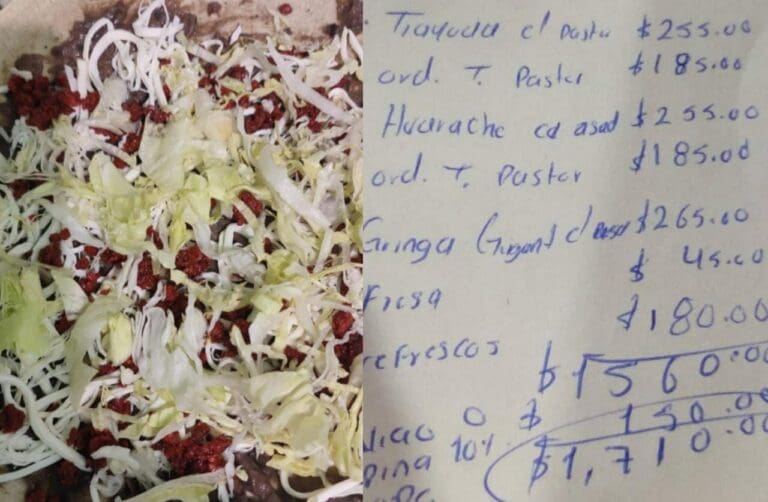 Tlayuda c/ Pastor $255.00
ord. T. Pastor $185.00
Huarache cd asad $255.00
ord. T. Pastor $185.00
Gringa Gigant c/ $265.00
Fresa $ 45.00
refrescos $180.00
$1560.00
0 $ 150.00
10% $1,710.00